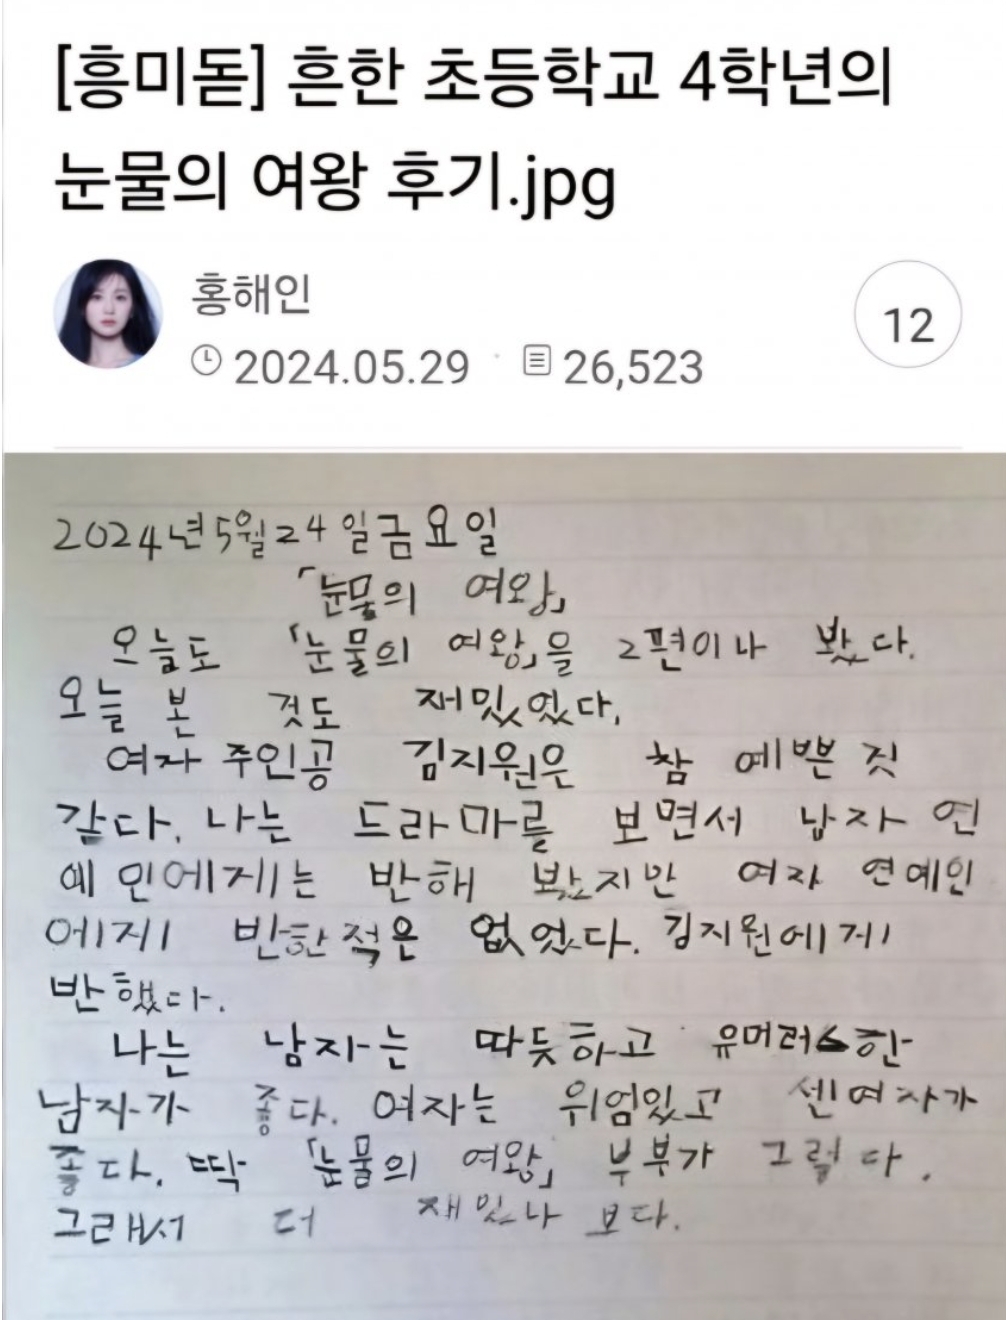 [흥미돋] 흔한 초등학교 4학년의
눈물의 여왕 후기.jpg
홍해인
2024.05.29
26,523
12
2024년 5월 24일 금요일
「눈물의 여왕」
오늘도 「눈물의 여왕」을 2편이나 봤다.
오늘 본 것도 재밌었다.
여자 주인공 김지원은 참 예쁜 것
같다. 나는 드라마를 보면서 남자 연
예인에게는 반해 봤지만 여자 연예인
에게 반한적은 없었다. 김지원에게
반했다.
나는 남자는 따듯하고 유머러스한
남자가 좋다. 여자는 위엄있고 센여자가
좋다. 딱 「눈물의 여왕」 부부가 그렇다.
그래서 더 재밌나 보다.